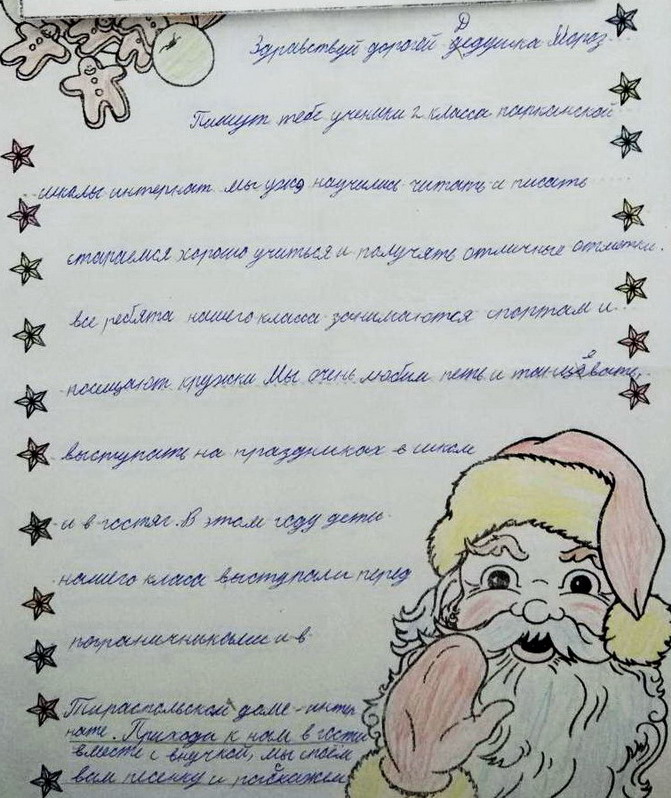 Здравствуй дорогей Дедушка Мороз.
Пишут тебе ученики 2 класса парканской
школы интернат мы уже научились читать и писать
стараемся хорошо учиться и получять отличные отметки.
все ребята нашего класса занимаются спортам и
посещают кружки Мы очень любим петь и танцевать,
выступать на праздниках в школе
и в гостях. В этом году дети
нашего класа выступали перед
пограничниками и в
Тираспольском доме-интер
нате. Приходи к нам в гости
вместе с внучкой, мы споём
вам песенку и расскажем